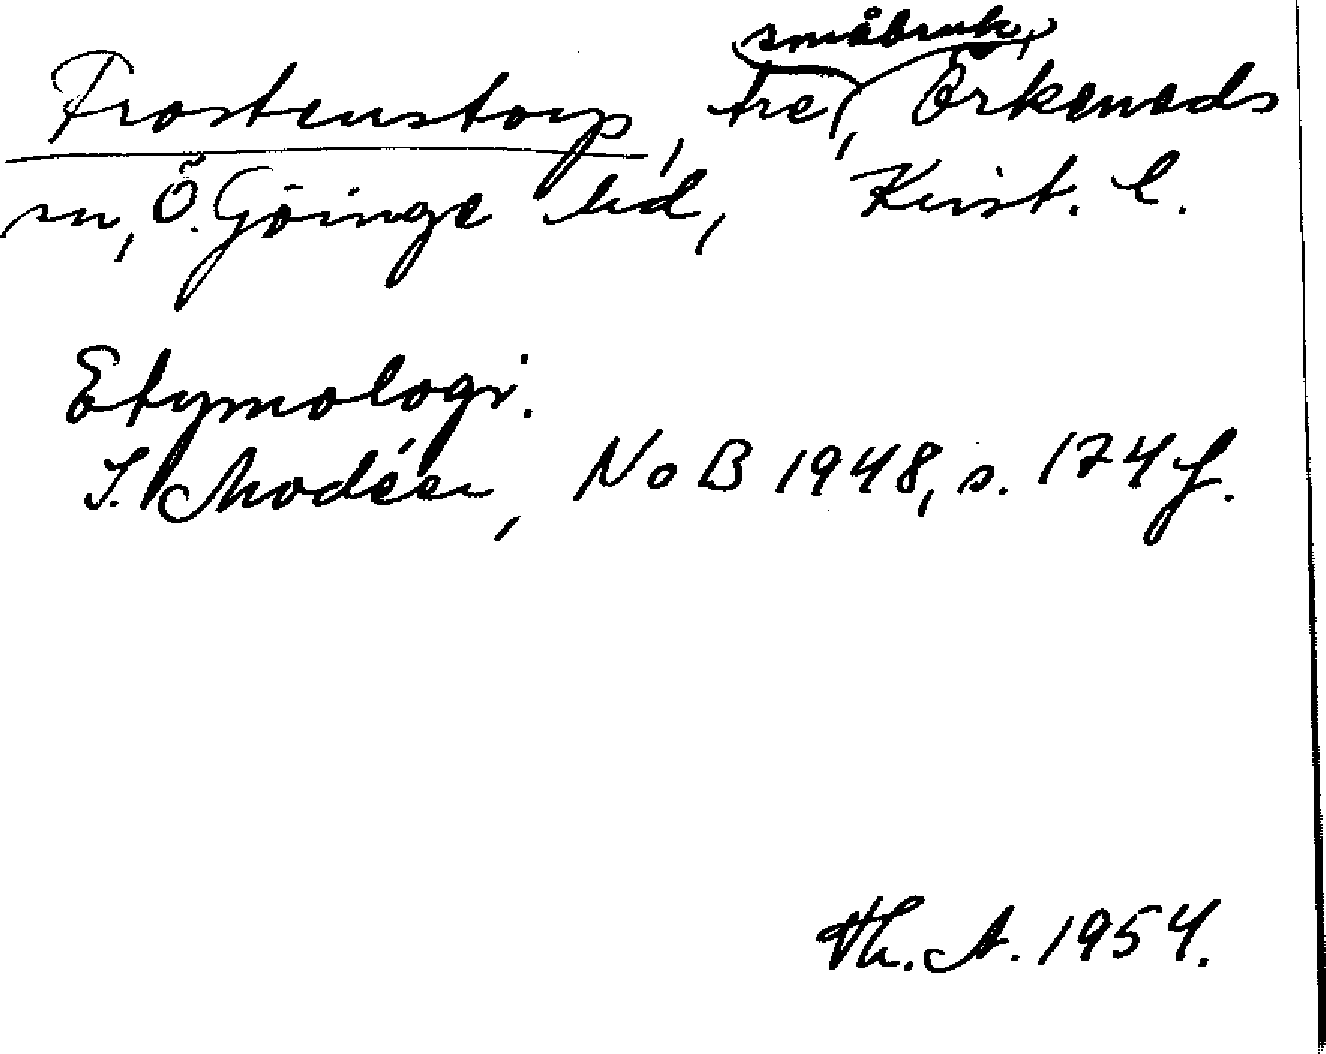 Frostenstorp, tre småbruk, Örkeneds
sn, Ö. Göinge hd, Krist. l.
Etymologi.
I. Modéer, NoB 1948, s. 174 f.
Th. A. 1954.